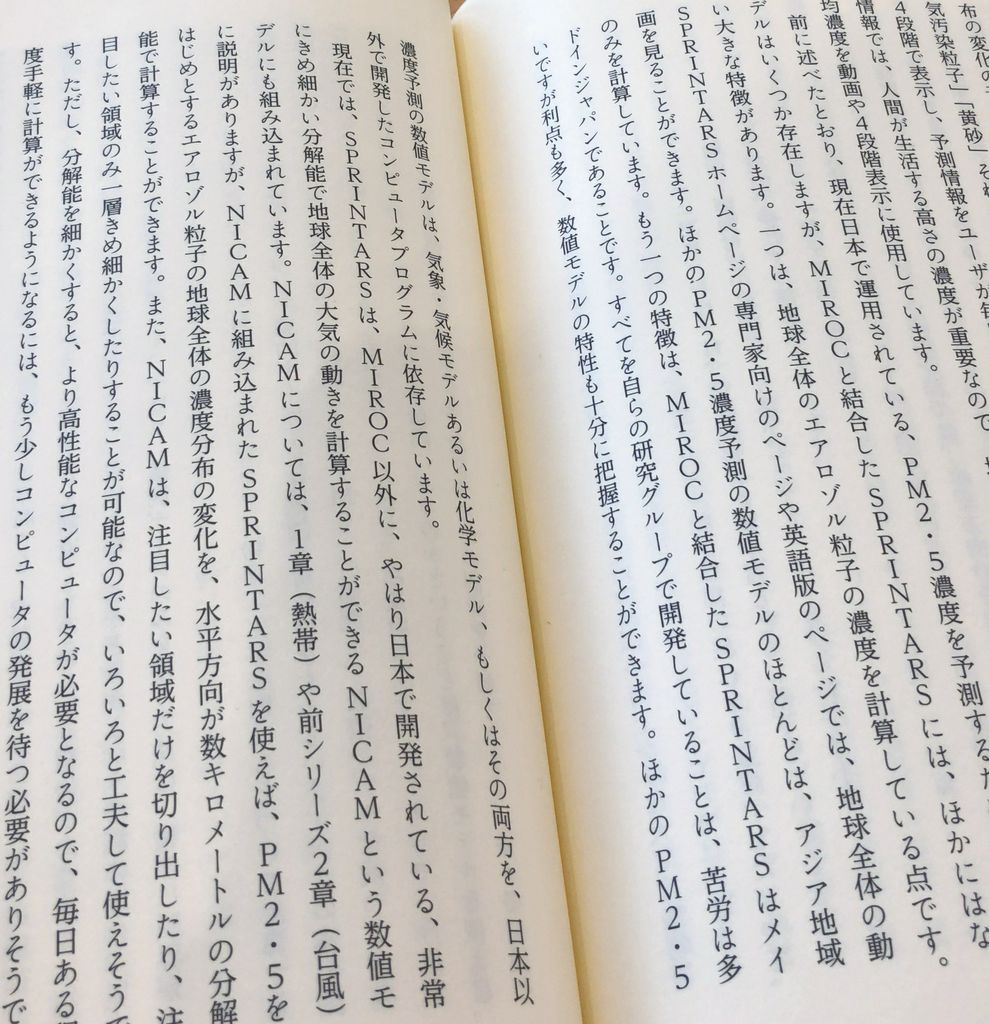 布の変化の
気汚染粒子」「黄砂」それ
４段階で表示し、予測情報をユーザが毎
情報では、人間が生活する高さの濃度が重要なので、
均濃度を動画や４段階表示に使用しています。
前に述べたとおり、現在日本で運用されている、ＰＭ２・５濃度を予測する
デルはいくつか存在しますが、ＭＩＲＯＣと結合したＳＰＲＩＮＴＡＲＳには、ほかにはな
い大きな特徴があります。一つは、地球全体のエアロゾル粒子の濃度を計算している点です。
ＳＰＲＩＮＴＡＲＳホームページの専門家向けのページや英語版のページでは、地球全体の動
画を見ることができます。ほかのＰＭ２・５濃度予測の数値モデルのほとんどは、アジア地域
のみを計算しています。もう一つの特徴は、ＭＩＲＯＣと結合したＳＰＲＩＮＴＡＲＳはメイ
ドインジャパンであることです。すべてを自らの研究グループで開発していることは、苦労は多
いですが利点も多く、数値モデルの特性も十分に把握することができます。ほかのＰＭ２・５
濃度予測の数値モデルは、気象・気候モデルあるいは化学モデル、もしくはその両方を、日本以
外で開発したコンピュータプログラムに依存しています。
現在では、ＳＰＲＩＮＴＡＲＳは、ＭＩＲＯＣ以外に、やはり日本で開発されている、非常
にきめ細かい分解能で地球全体の大気の動きを計算することができるＮＩＣＡＭという数値モ
デルにも組み込まれています。ＮＩＣＡＭについては、１章（熱帯）や前シリーズ２章（台風）
に説明がありますが、ＮＩＣＡＭに組み込まれたＳＰＲＩＮＴＡＲＳを使えば、ＰＭ２・５を
はじめとするエアロゾル粒子の地球全体の濃度分布の変化を、水平方向が数キロメートルの分解
能で計算することができます。また、ＮＩＣＡＭは、注目したい領域だけを切り出したり、注
目したい領域のみ一層きめ細かくしたりすることが可能なので、いろいろと工夫して使えそうで
す。ただし、分解能を細かくすると、より高性能なコンピュータが必要となるので、毎日ある
度手軽に計算ができるようになるには、もう少しコンピュータの発展を待つ必要がありそうで